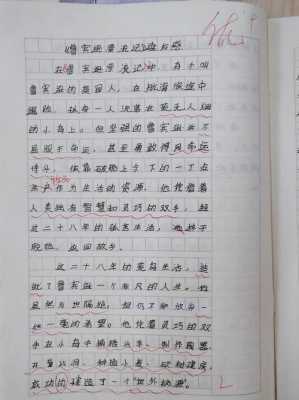 《鲁宾逊漂流记》读后感
在《鲁宾逊漂流记》中，有个叫
鲁宾逊的英国人，在航海旅途中
遇险，独身一人流落在荒无人烟
的小岛上。但坚强的鲁宾逊并不
屈服于命运，甚至勇敢得同命运
作斗，依靠破船上余下的一丁点
东西作为生活的资源，他凭着着
人类独有智慧和灵巧的双手，经
过二十八年的孤岛生活，终于
脱险，返回故乡。
这二十八年的荒岛生活，造
就了鲁宾逊一个非凡的人生。他
虽然与世隔绝，但仍不放弃一
丝一毫的希望。他凭着灵巧的双
手在小岛手捕鱼火羊，制作陶器，
种植小麦，砍树建房，
成功的建造了一个“世外桃源”。